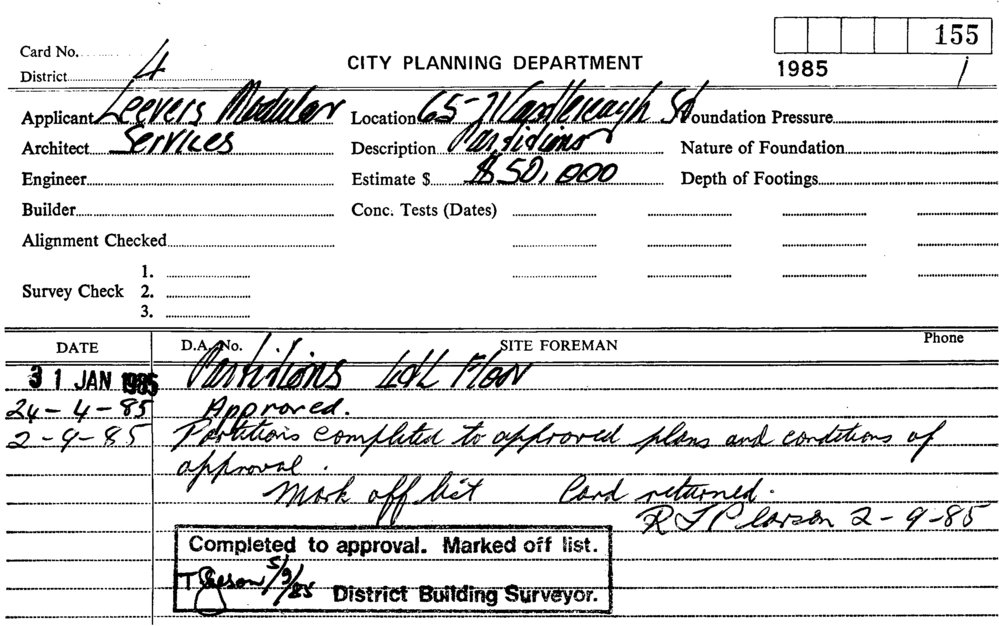 155
1985 /
Card No.
District 4
CITY PLANNING DEPARTMENT
Applicant Leevers Modular Location 65-71 Castlereagh St Foundation Pressure
Architect Services Description Partitions Nature of Foundation
Engineer Estimate $ $50,000 Depth of Footings
Builder Conc. Tests (Dates)
Alignment Checked
1.
Survey Check 2.
3.
DATE D.A. No. SITE FOREMAN Phone
31 JAN 1985 Partitions 4th Floor
24-4-85 Approved.
2-9-85 Partitions completed to approved plans and conditions of
approval.
Mark off list Card returned.
R J Pearson 2-9-85
Completed to approval. Marked off list.
5/9/85 District Building Surveyor.